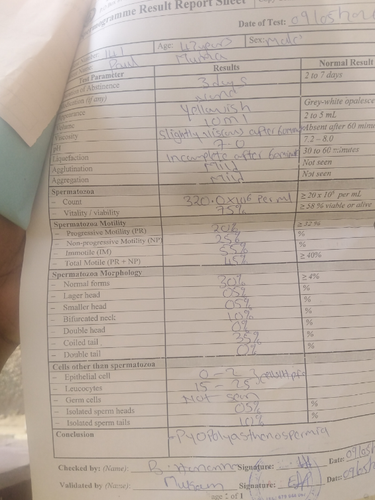 Semenogramme Result Report Sheet
Date of Test: 09/05/202
Age: 42 years Sex: Male
Test Parameter Results Normal Result
of Abstinence 3 days 2 to 7 days
(if any) None
Yellowish Grey-white opalesce
10ml 2 to 5 mL
slightly viscous after 60min Absent after 60 minu
7.0 7.2 – 8.0
Liquefaction Incomplete after 60min 30 to 60 minutes
Agglutination Mild Not seen
Aggregation Mild Not seen
Spermatozoa
– Count 320.0x10⁶ per ml ≥ 20 x 10⁶ per mL
– Vitality / viability 75% ≥ 58 % viable or alive
Spermatozoa Motility
– Progressive Motility (PR) 20% ≥ 32 %
– Non-progressive Motility (NP) 25% %
– Immotile (IM) 55% %
– Total Motile (PR + NP) 45% ≥ 40%
Spermatozoa Morphology
– Normal forms 30% ≥ 4%
– Lager head 05% %
– Smaller head 05% %
– Bifurcated neck 10% %
– Double head 0% %
– Coiled tail 35% %
– Double tail 0% %
Cells other than spermatozoa
– Epithelial cell 0 – 2
– Leucocytes 15 – 25
– Germ cells Not seen
– Isolated sperm heads 05% %
– Isolated sperm tails 10% %
Conclusion - Pyopolyasthenospermia
Checked by (Name): Signature: Date: 09/05
Validated by (Name): Signature: Date: 09/05